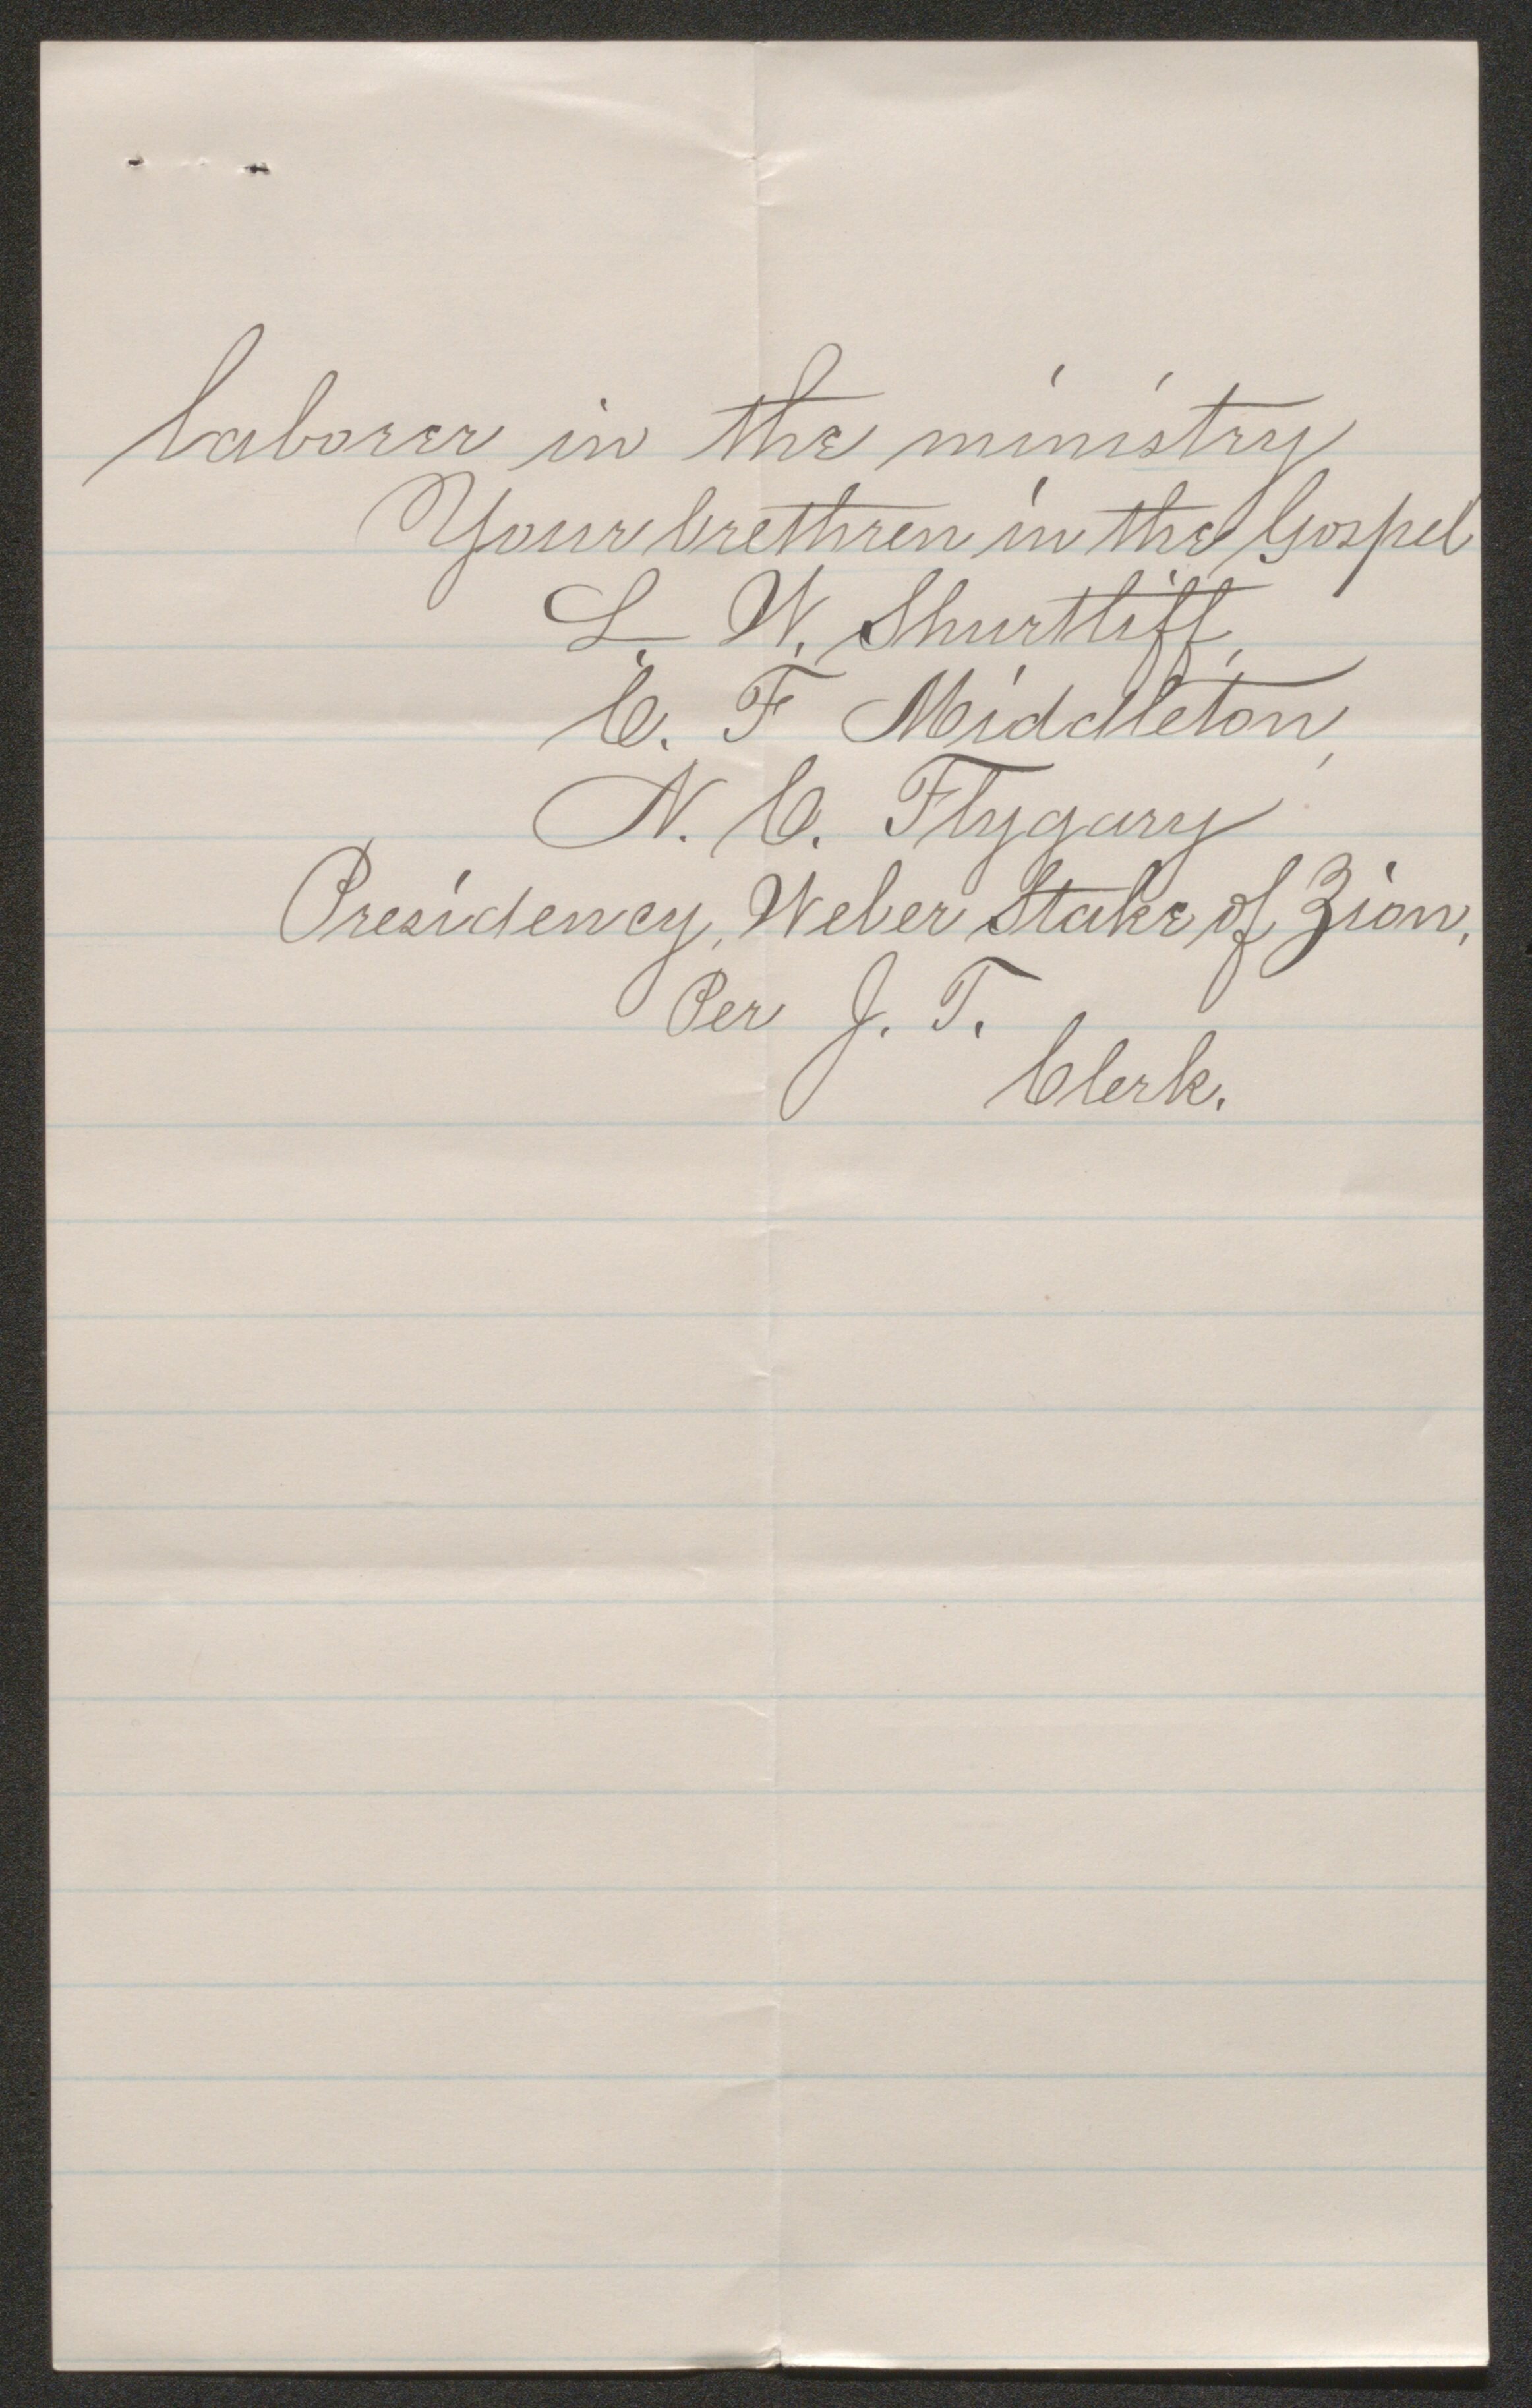 laborer in the ministry
Your brethren in the Gospel
L. W. Shurtliff,
C. F Middleton,
N. C. Flygary
Presidency, Weber Stake of Zion,
Per J. T.
Clerk.